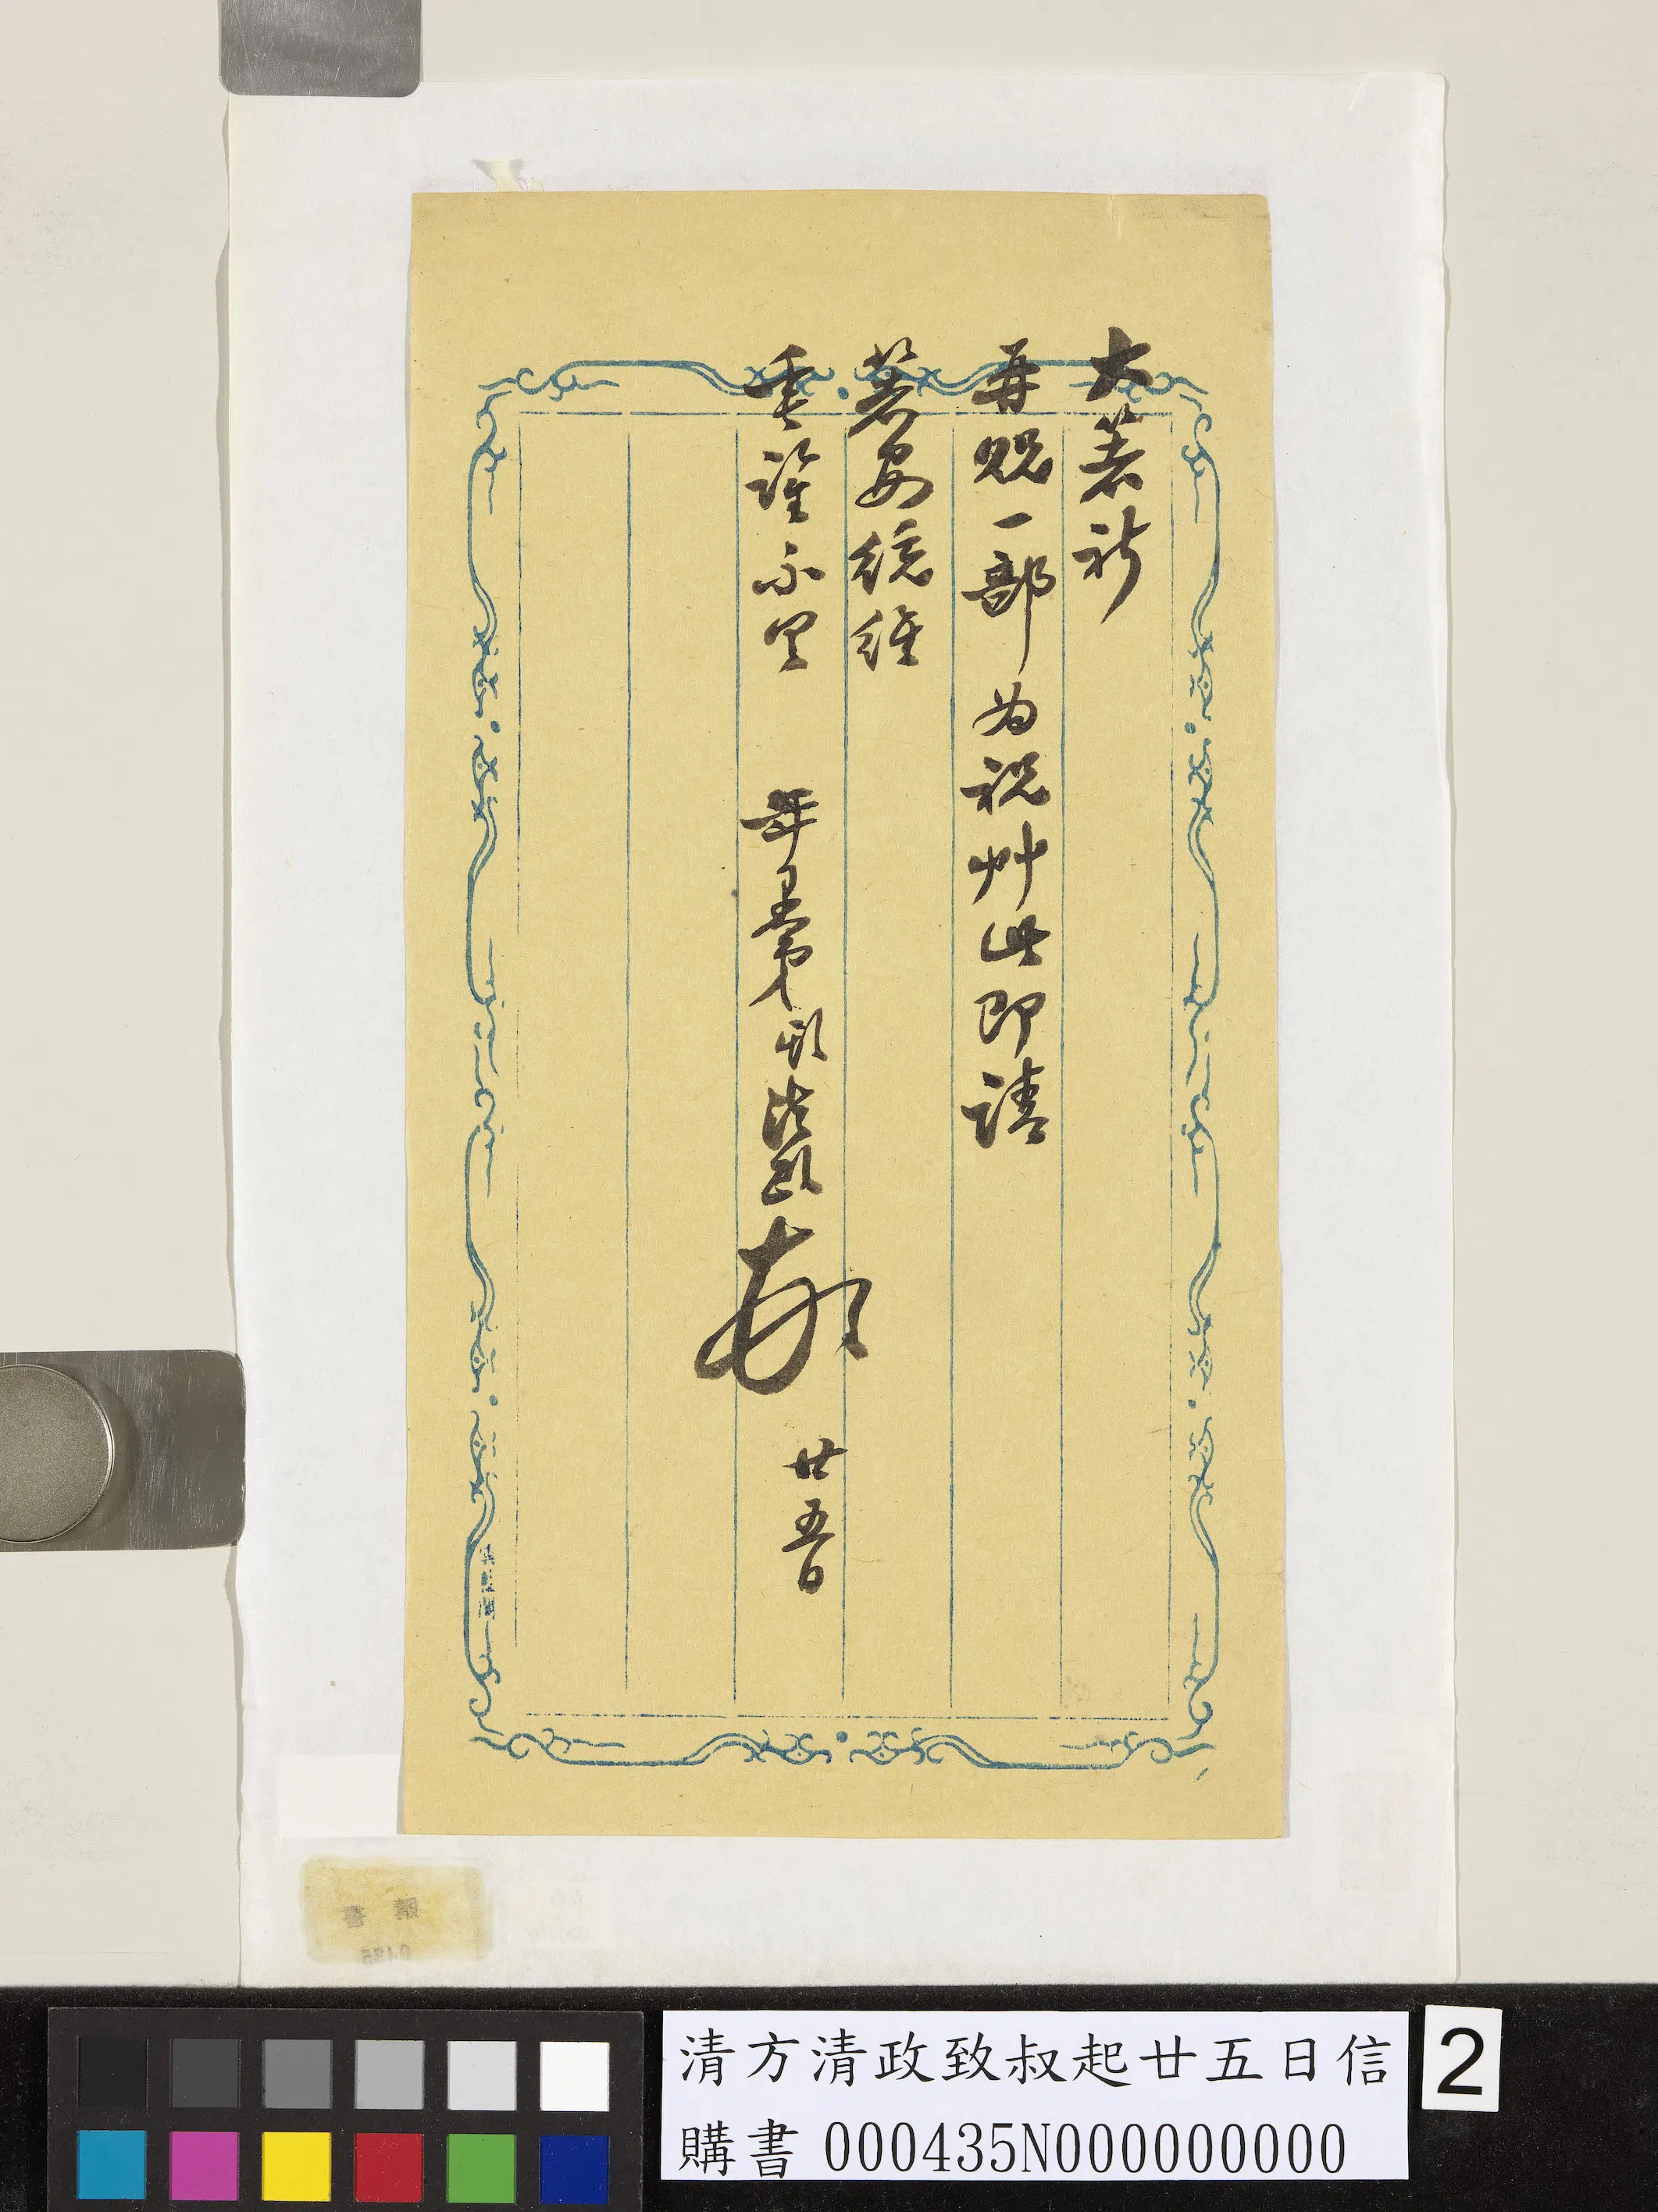 大著祈
再貺一部为祝艸此即請
著安統維
垂詧不具
年愚弟 方濬頤頓
廿五日
清方清政致叔起廿五日信
購書 000435N000000000
2